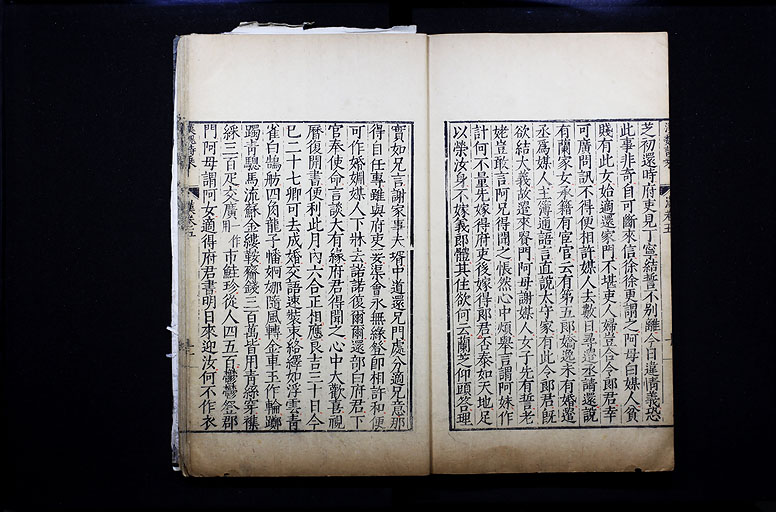 芝初還時府吏見丁寧結誓不別離今日違情義恐
此事非奇自可斷來信徐徐更謂之阿母白媒人貧
賤有此女始適還家門不堪吏人婦豈合令郎君幸
可廣問訊不得便相許媒人去數日尋遣丞請還說
有蘭家女承籍有宦官云有第五郎嬌逸未有婚遣
丞為媒人主簿通語言直說太守家有此令郎君既
欲結大義故遣來貴門阿母謝媒人女子先有誓老
姥豈敢言阿兄得聞之悵然心中煩舉言謂阿妹作
計何不量先嫁得府吏後嫁得郎君否泰如天地足
以榮汝身不嫁義郎體其住欲何云蘭芝仰頭答理
實如兄言謝家事夫壻中道還兄門處分適兄意那
得自任專雖與府吏要渠會永無緣登即相許和便
可作婚姻媒人下牀去諾諾復爾爾還部白府君下
官奉使命言談大有緣府君得聞之心中大歡喜視
曆復開書便利此月內六合正相應良吉三十日今
已二十七卿可去成婚交語速裝束絡繹如浮雲青
雀白鵠舫四角龍子幡婀娜隨風轉金車玉作輪躑
躅青驄馬流蘇金鏤鞍齎錢三百萬皆用青絲穿襍
綵三百疋交廣用一作市鮭珍從人四五百鬱鬱登郡
門阿母謂阿女適得府君書明日來迎汝何不作衣